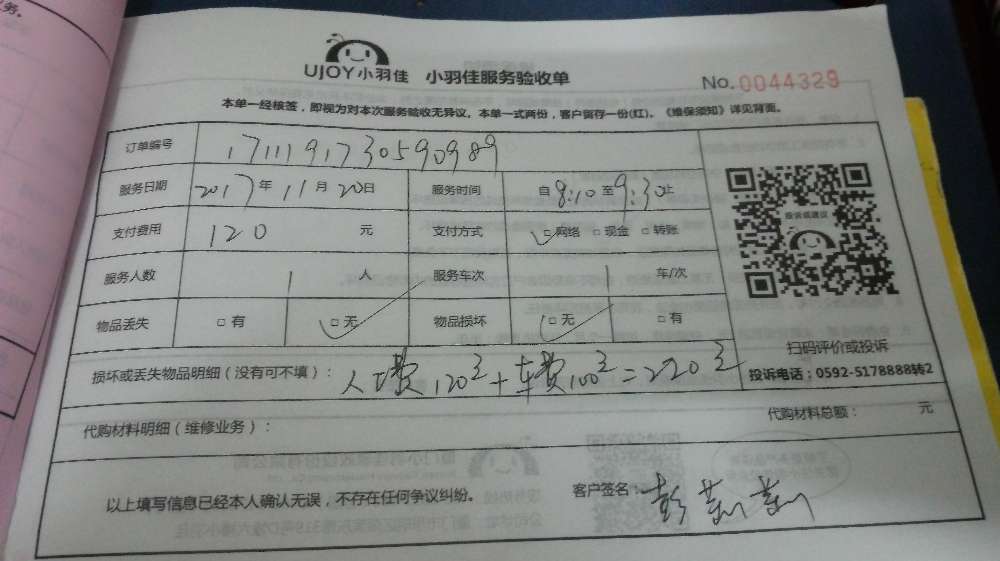 务。
UJOY小羽佳 小羽佳服务验收单
No.0044329
本单一经核签，即视为对本次服务验收无异议。本单一式两份，客户留存一份(红)。《维保须知》详见背面。
订单编号 1711191730590989
服务日期 2017年11月20日 服务时间 自8:10至9:30止
支付费用 120 元 支付方式 □网络 □现金 □转账
服务人数 1 人 服务车次 1 车/次
物品丢失 □有 □无 物品损坏 □无 □有
投诉或建议
扫码评价或投诉
投诉电话：0592-5178888转2
损坏或丢失物品明细（没有可不填）：人工费120元+车费100元=220元
代购材料明细（维修业务）： 代购材料总额： 元
以上填写信息已经本人确认无误，不存在任何争议纠纷。 客户签名：彭